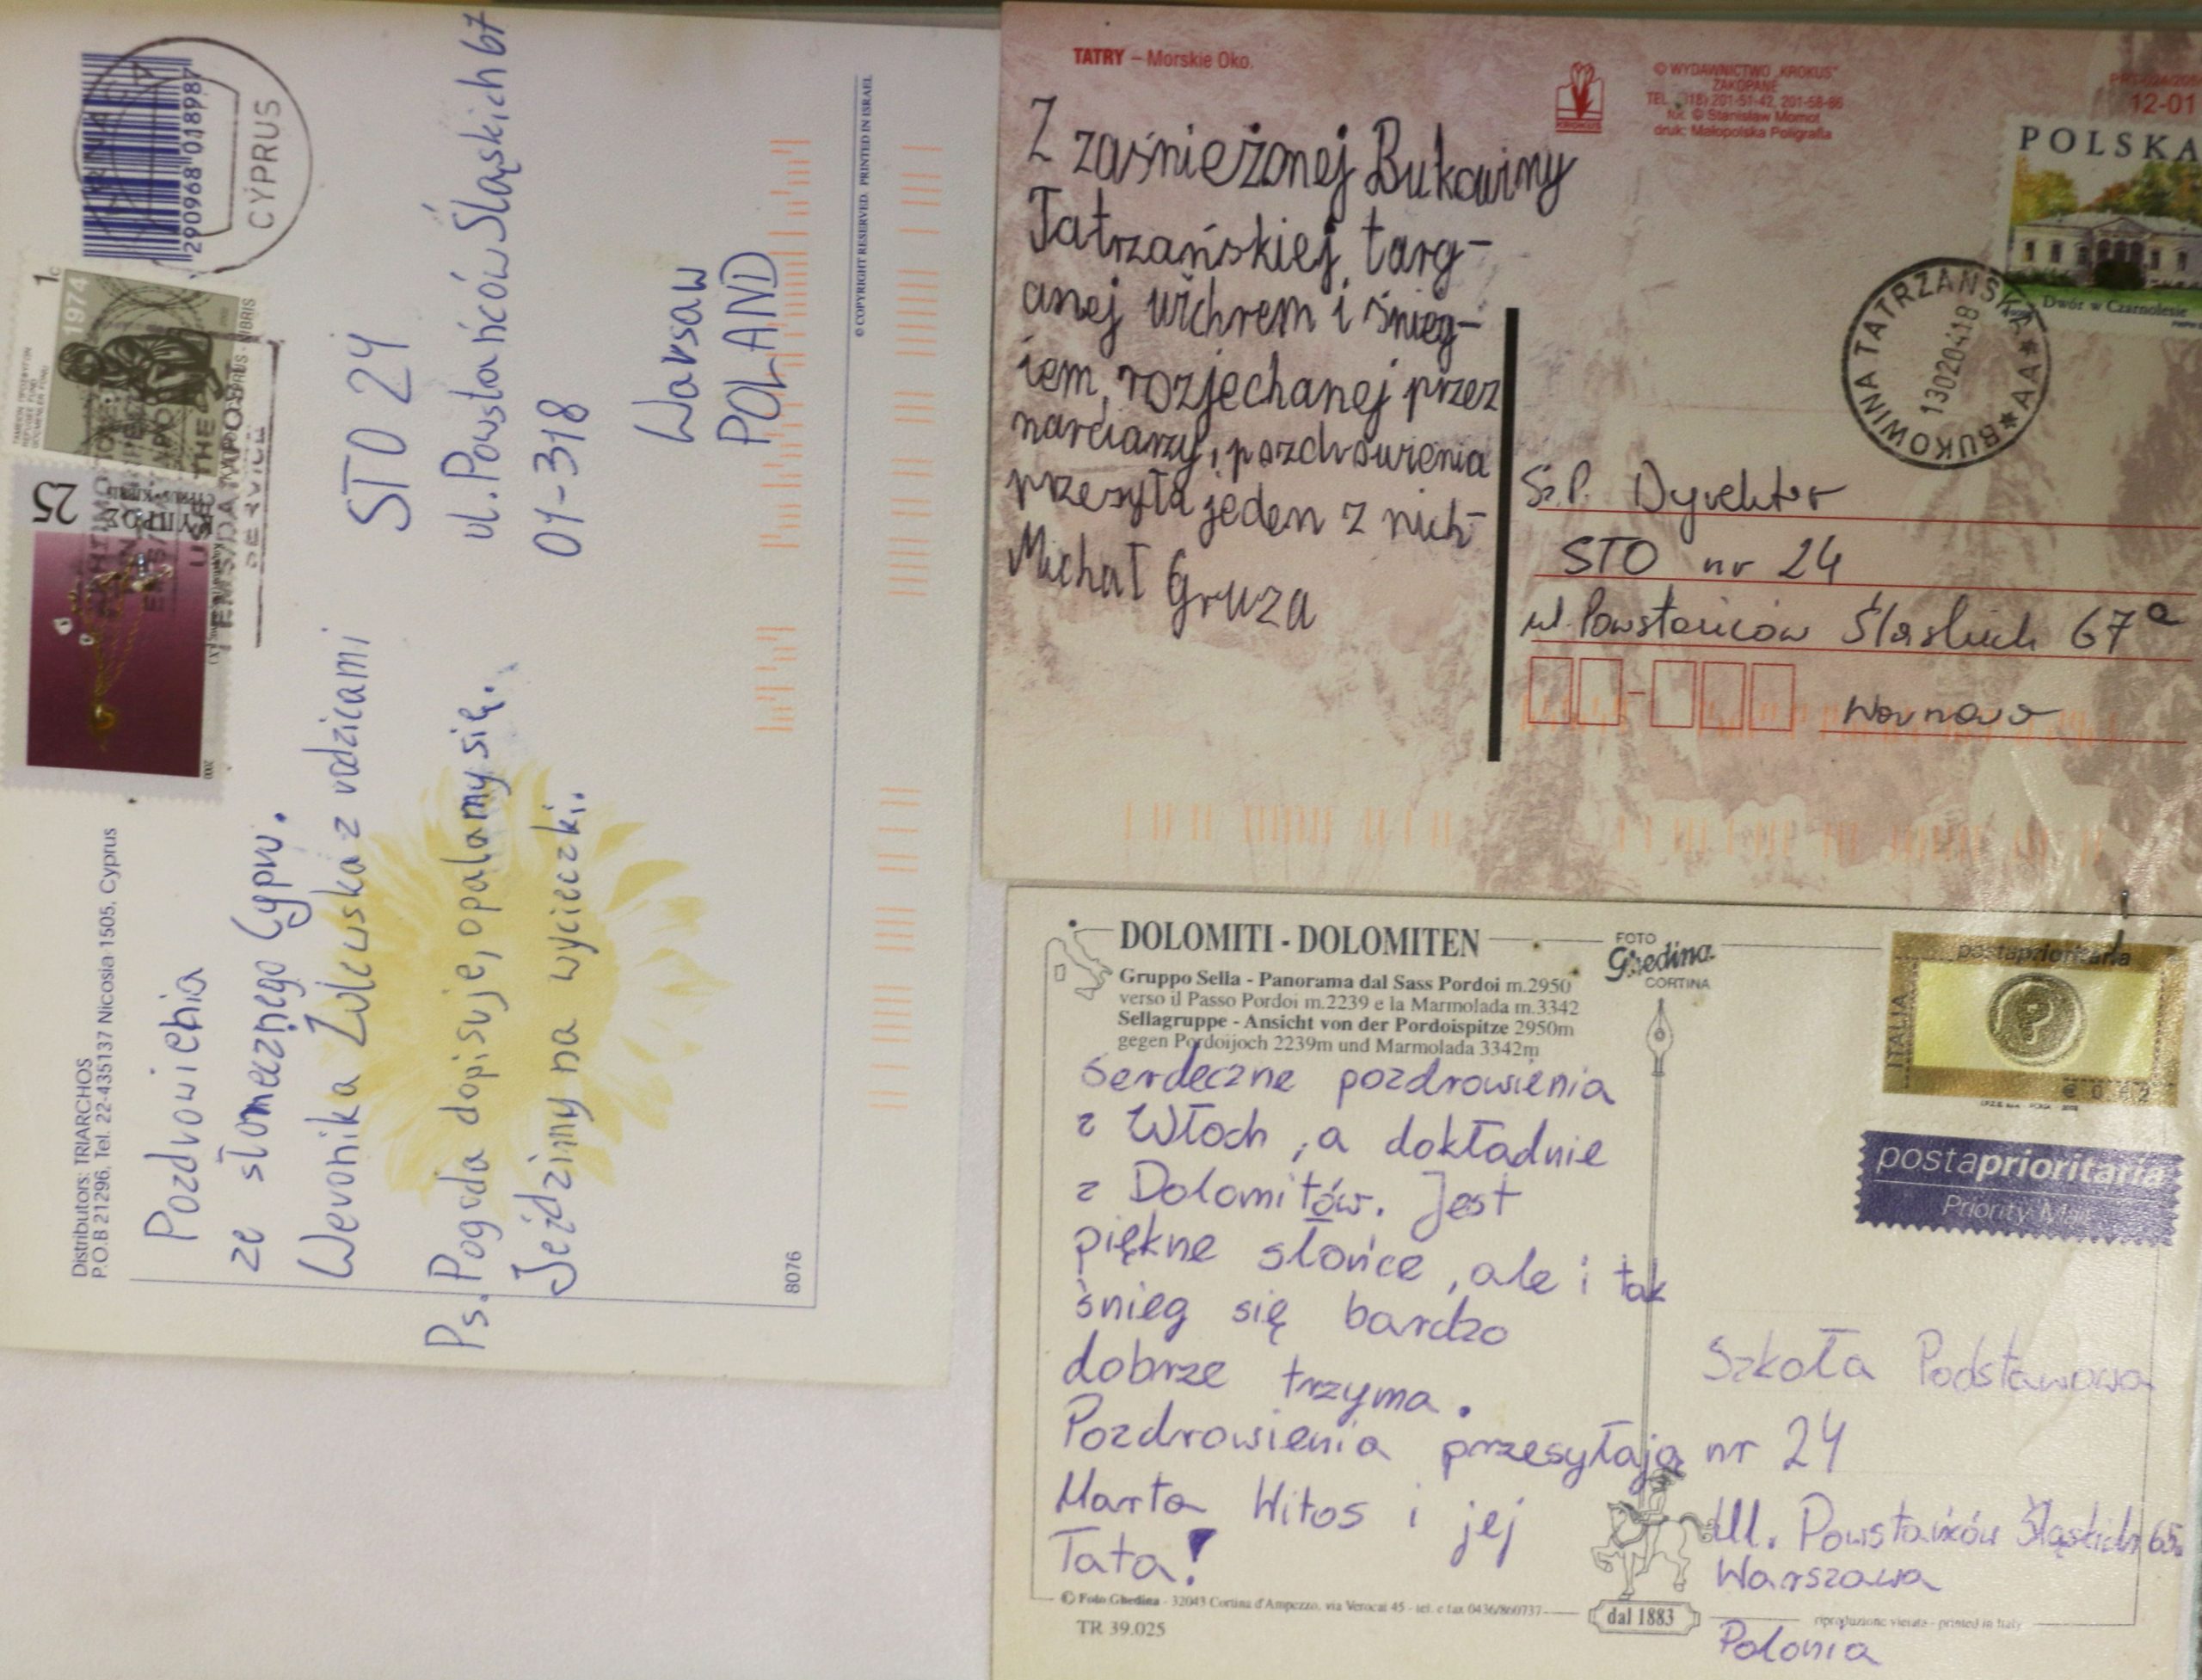 Distributors: TRIARCHOS
P.O.B 21296, Tel. 22-435137 Nicosia 1505, Cyprus
Pozdrowienia
ze słonecznego Cypru.
Weronika z rodzicami
Ps. Pogoda dopisuje, opalamy się.
Jeździmy na wycieczki.
8076
25
2000
1c
1974
7290968 018987
CYPRUS
USE THE
EMS/DATAPOST
SERVICE
STO 24
ul. Powstańców Śląskich 67
01-318
Warsaw
POLAND
© COPYRIGHT RESERVED. PRINTED IN ISRAEL
TATRY – Morskie Oko.
KROKUS
© WYDAWNICTWO „KROKUS"
ZAKOPANE
TEL. (18) 201-51-42, 201-58-66
fot. © Stanisław Momot
druk: Małopolska Poligrafia
12-01
POLSKA
Dwór w Czarnolesie
BUKOWINA TATRZAŃSKA
AA
13020418
Z zaśnieżonej Bukowiny
Tatrzańskiej, targ-
anej wichrem i śnieg-
iem, rozjechanej przez
narciarzy, pozdrowienia
przesyła jeden z nich-
Michał Gruza
Sz.P. Dyrektor
STO nr 24
ul. Powstańców Śląskich 67a
Warszawa
DOLOMITI - DOLOMITEN
Gruppo Sella - Panorama dal Sass Pordoi m.2950
verso il Passo Pordoi m.2239 e la Marmolada m.3342
Sellagruppe - Ansicht von der Pordoispitze 2950m
gegen Pordoijoch 2239m und Marmolada 3342m
FOTO
Ghedina
CORTINA
postaprioritaria
ITALIA
€ 0,62
postaprioritaria
Priority Mail
Serdeczne pozdrowienia
z Włoch, a dokładnie
z Dolomitów. Jest
piękne słońce, ale i tak
śnieg się bardzo
dobrze trzyma.
Pozdrowienia przesyłają
Marta Witos i jej
Tata!
Szkoła Podstawowa
nr 24
Ul. Powstańców Śląskich 65a
Warszawa
Polonia
© Foto Ghedina - 32043 Cortina d'Ampezzo, via Verocai 45 - tel. e fax 0436/860737
dal 1883
riproduzione vietata - printed in Italy
TR 39.025